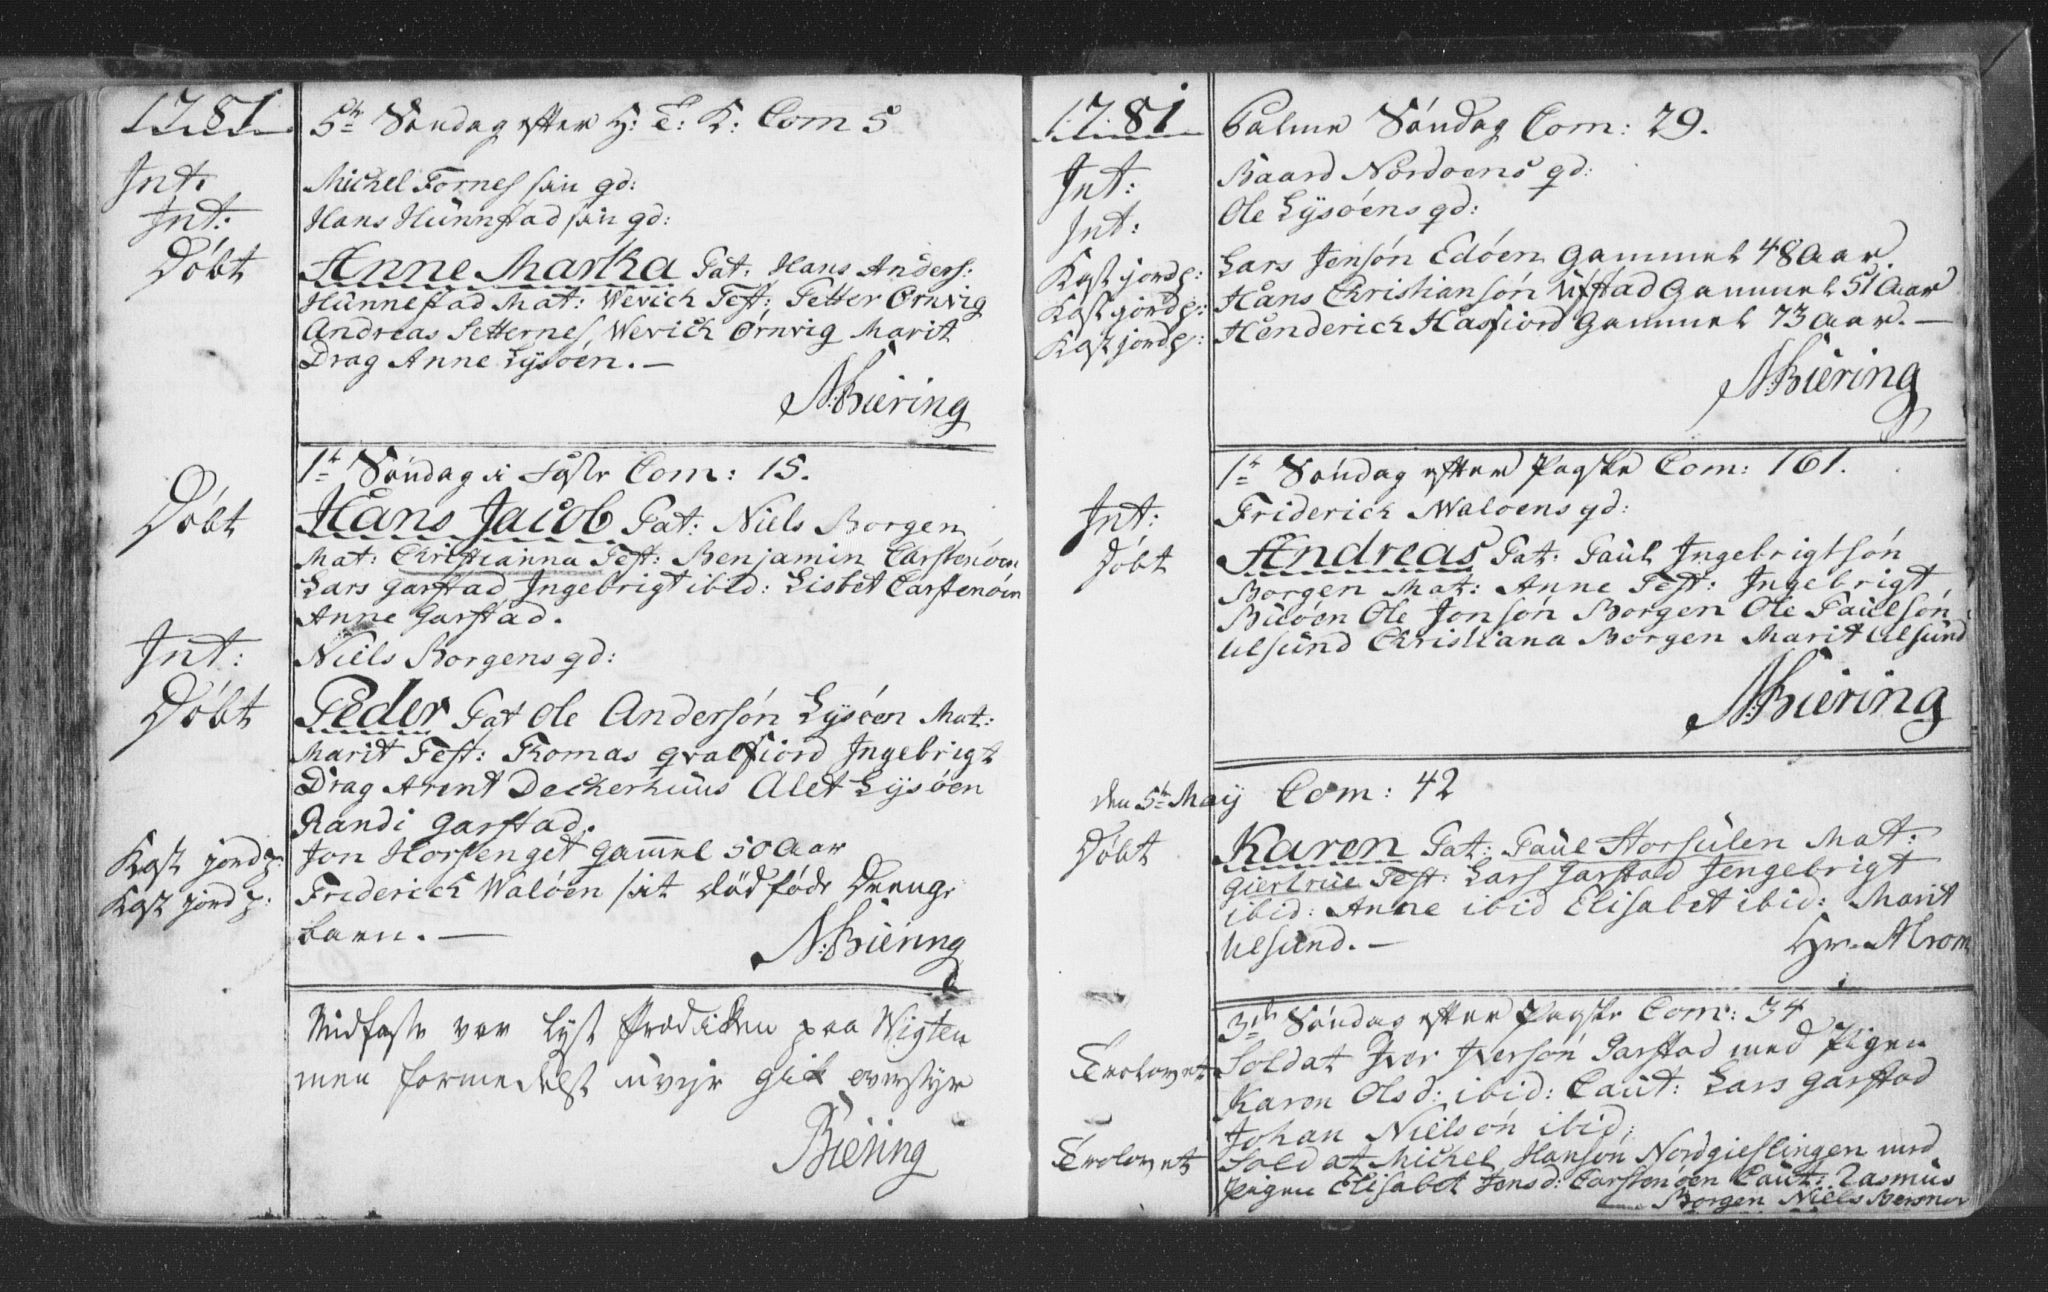 1781
5te Søndag efter H: T: K: Com 5
Int. Michel Fornes sin qd:
Int: Hans Hünnestad sin qd:
Døbt Anne Martha Pat: Hans Anders:
Hünnestad Mat: Wevich Test: Petter Ørnvig
Andreas Setternes, Wevich Ørnvig Marit
Drag Anne Lysøen. —
N: Biering
1te Søndag i Faste Com: 15.
Døbt Hans Jacob Pat: Niels Borgen
Mat: Christianna Test: Benjamin Carstenøen
Lars Garstad Ingebrigt ibid: Lisbet Carstenøen
Anne Garstad.
Int: Niels Borgens qd:
Døbt Peder Pat Ole Andersøn Lysøen Mat:
Marit Test: Thomas qvalfiord Ingebrigt
Drag Arent Deckerhuus Alet Lysøen
Randi Garstad.
Kast jord p: Jon Horsenget gammel 50 Aar
Kast jord p: Friderich Waløen sit dødføde Drenge
barn. —
N: Biering
Midfaste var lyst Prædicken paa Wigten
men formedelst uvejr gik overstyr
Biering
1781
Palme Søndag Com: 29.
Int: Baard Nordøens qd:
Int: Ole Lysøens qd:
Kast jord p: Lars Jensøn Edøen gammel 48 Aar.
Kast jord p: Hans Christiansøn Ufstad gammel 51 Aar
Kast jord p: Henderich Hasfiord gammel 73 Aar. —
N: Biering
1te Søndag efter Paaske Com: 161.
Int: Friderich Waløens qd:
Døbt Andreas Pat: Paul Ingebrigtsøn
Borgen Mat: Anne Test: Ingebrigt
Buøen Ole Jonsøn Borgen Ole Paulsøn
Ulsund Christiana Borgen Marit Ulsund
N: Biering
den 5te May Com: 42
Døbt Karen Pat: Paul Storsulen Mat:
Giertrue Test: Lars Garstad Jengebrigt
ibid: Anne ibid Elisabet ibid: Marit
Ulsund. —
Hr. Krom
3die Søndag efter Paaske Com: 34
Trolovet Soldat Iver Iversøn Garstad med Pigen
Karen Olsd: ibid: Caut: Lars Garstad
Johan Nielsøn ibid:
Trolovet Soldat Michel Hansøn Nordgieslingen med
Pigen Elisabet Jensd: Carstenøen Caut: Rasmus
Borgen Niels